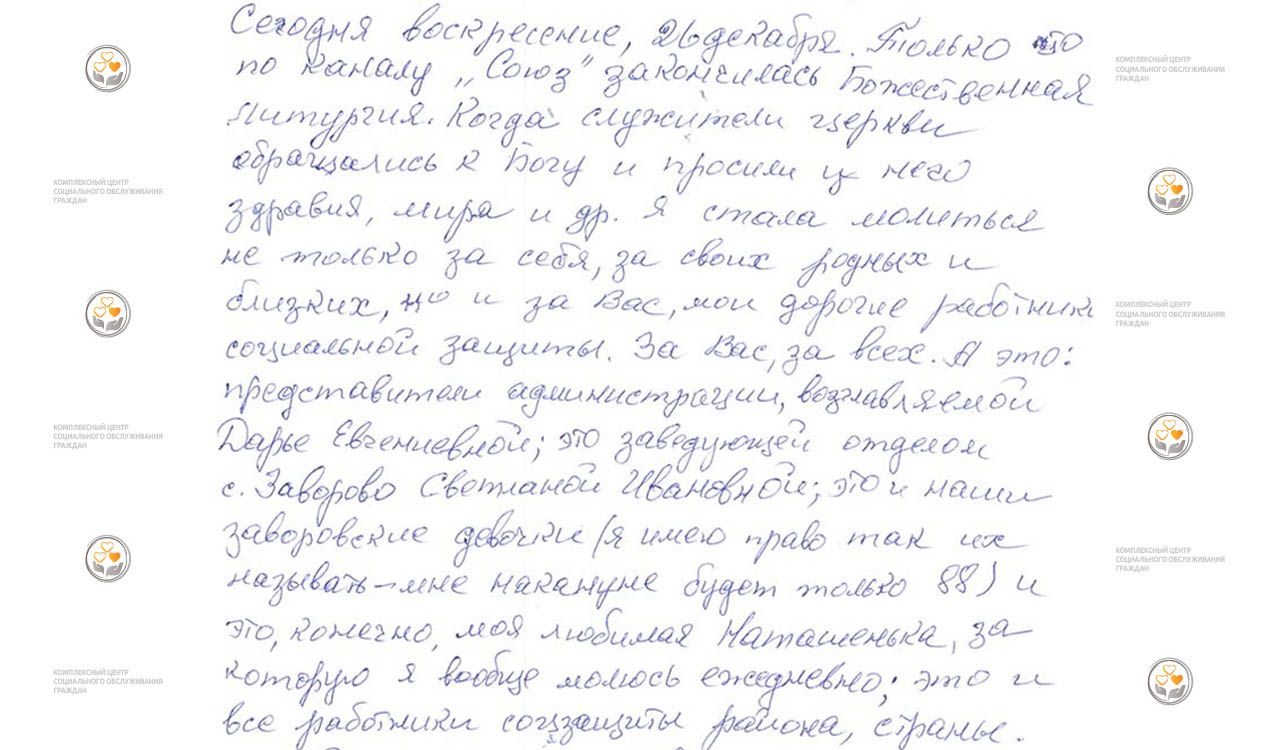 Сегодня воскресение, 26 декабря. Только что
по каналу „Союз" закончилась Божественная
Литургия. Когда служители церкви
обращались к Богу и просили у него
здравия, мира и др. я стала молиться
не только за себя, за своих родных и
близких, но и за Вас, мои дорогие работники
социальной защиты. За Вас, за всех. А это:
представители администрации, возглавляемой
Дарье Евгениевной; это заведующей отделом
с. Заворово Светланой Ивановной; это и наши
заворовские девочки (я имею право так их
называть – мне накануне будет только 88) и
это, конечно, моя любимая Наташенька, за
которую я вообще молюсь ежедневно; это и
все работники соцзащиты района, страны.
КОМПЛЕКСНЫЙ ЦЕНТР
СОЦИАЛЬНОГО ОБСЛУЖИВАНИЯ
ГРАЖДАН
КОМПЛЕКСНЫЙ ЦЕНТР
СОЦИАЛЬНОГО ОБСЛУЖИВАНИЯ
ГРАЖДАН
КОМПЛЕКСНЫЙ ЦЕНТР
СОЦИАЛЬНОГО ОБСЛУЖИВАНИЯ
ГРАЖДАН
КОМПЛЕКСНЫЙ ЦЕНТР
СОЦИАЛЬНОГО ОБСЛУЖИВАНИЯ
ГРАЖДАН
КОМПЛЕКСНЫЙ ЦЕНТР
СОЦИАЛЬНОГО ОБСЛУЖИВАНИЯ
ГРАЖДАН
КОМПЛЕКСНЫЙ ЦЕНТР
СОЦИАЛЬНОГО ОБСЛУЖИВАНИЯ
ГРАЖДАН